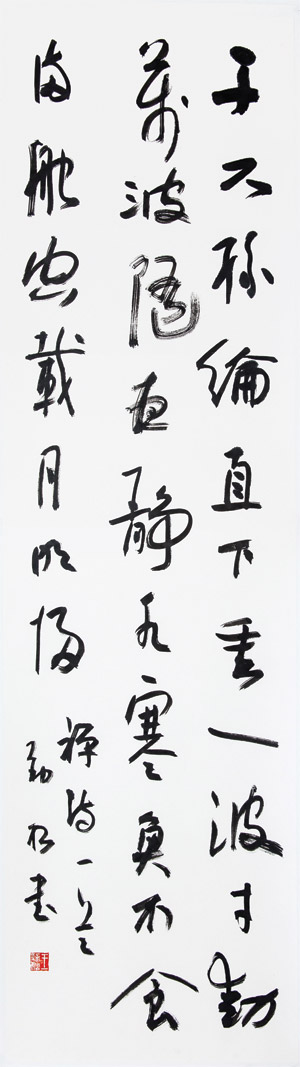 千尺絲綸直下垂一波才動
萬波隨夜靜水寒魚不食
滿船空載月明歸
禪詩一首
勁松書